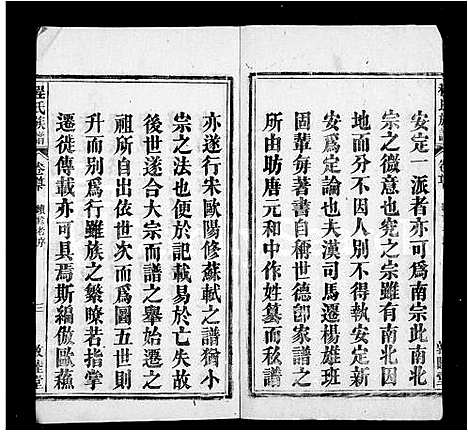 安定一派者亦可爲南宗此南北
宗之微意也究之宗雖有南北因
地而分不因人别不得執安定新
安爲定論也夫漢司馬遷楊雄班
固輩每書自稱世德卽家譜之
所由助唐元和中作姓纂而私譜
亦遂行宋歐陽修蘇軾之譜猶小
宗之法也便於記載易於亡失故
後世遂合大宗而譜之舉始遷之
祖所自出依世次而爲圖五世則
升而别爲行雖族之繁瞭若指掌
遷徙傳載亦可具焉斯編倣歐蘇
程氏族譜
卷首
三
敦睦堂